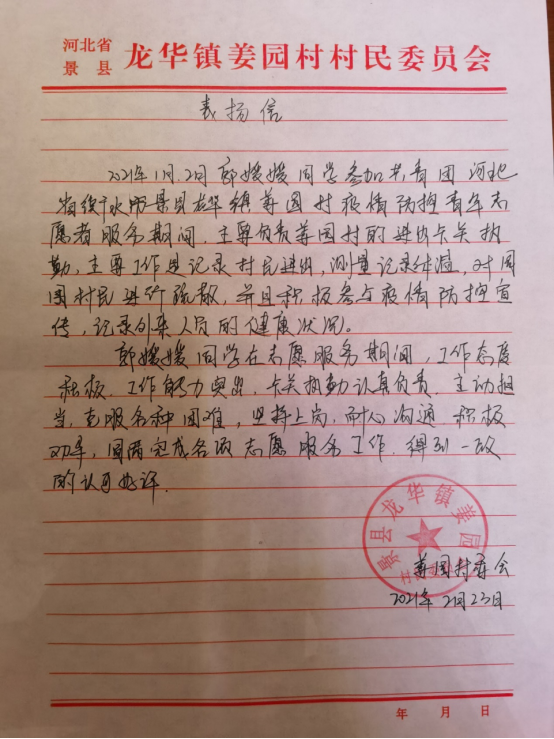 河北省
景县
龙华镇姜园村村民委员会
表扬信
2021年1月.2月郭媛媛同学参加共青团河北
省衡水市景县龙华镇姜园村疫情防控青年志
愿者服务期间.主要负责姜园村的进出卡关执
勤,主要工作是记录村民进出,测量记录体温,对围
困村民进行疏散,并且积极参与疫情防控宣
传,记录外来人员的健康状况。
郭媛媛同学在志愿服务期间,工作态度
积极.工作能力突出.卡关执勤认真负责.主动担
当,克服各种困难,坚持上岗,耐心沟通 积极
劝导,圆满完成各项志愿服务工作.得到一致
的认可好评.
景县龙华镇姜园
姜园村委会
2021年2月23日
年 月 日